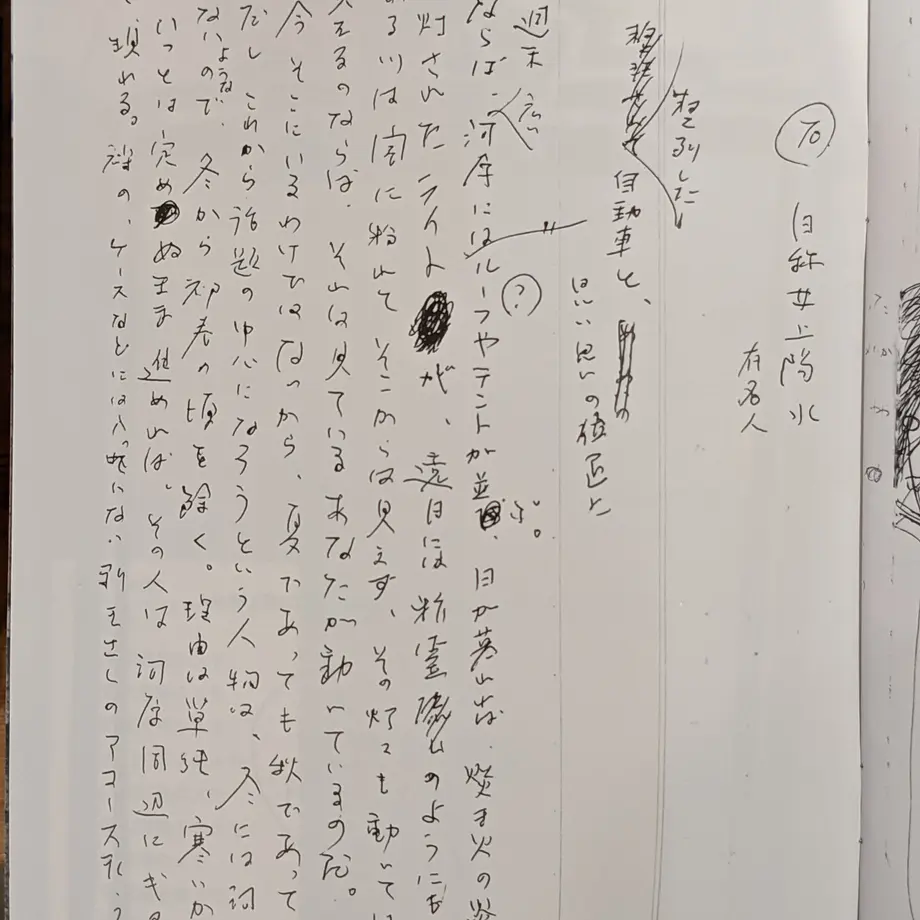 70
自称井上陽水
有名人
整列した
自動車と、
思い思いの位置に
週末
ならば、河原にはルーフやテントが並ぶ。日が暮れれば、焚き火の
灯されたライトが、遠目には精霊
は闇に紛れてそこからは見えず、その灯
えるのならば、それは見ているあなたが動いているのだ。
今そこにいるわけではないから、夏であっても秋であって
だし、これから話題の中心になろうという人物は、冬には河
ないようなので、冬から初春の頃を除く。理由は単純、寒いか
いつとは定めぬまま進めれば、その人は河原周辺にギ
現れる。裸の、ケースなどには入っていない剥き出しのアコースティ